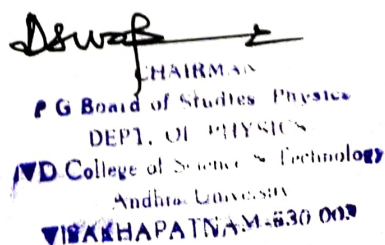 CHAIRMAN
P G Board of Studies Physics
DEPT. OF PHYSICS
College of Science & Technology
Andhra University
VISAKHAPATNAM-530 003